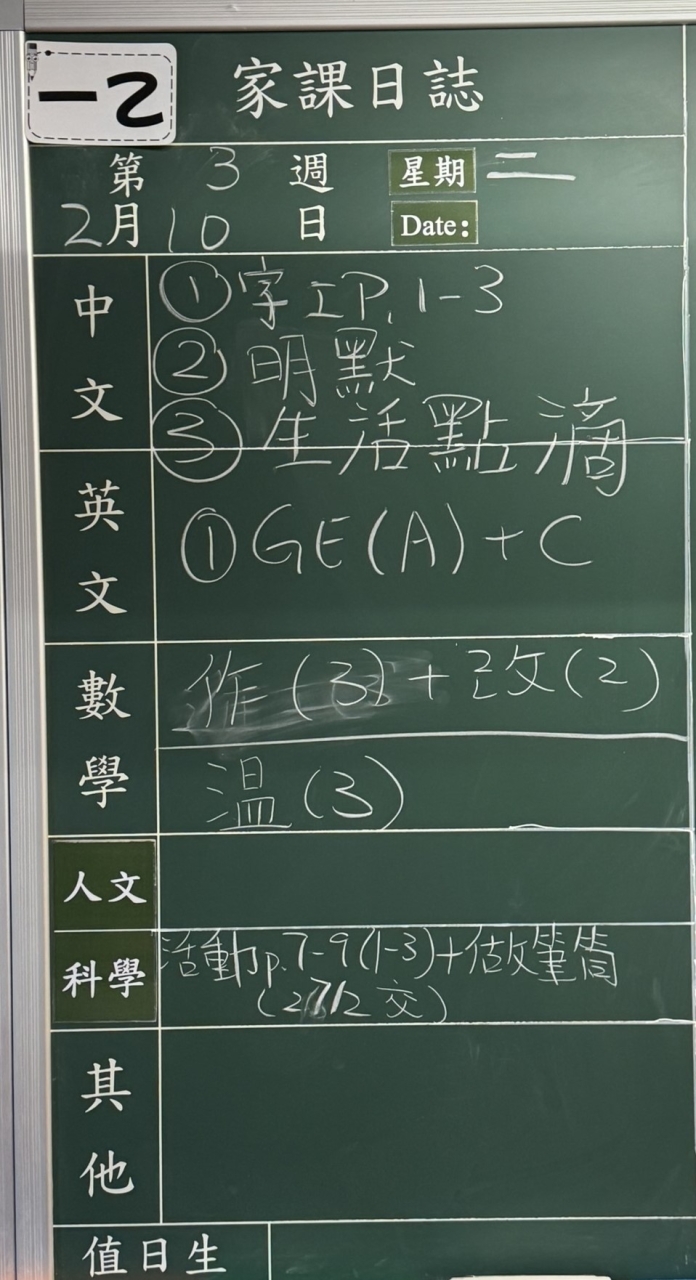 一2
家課日誌
第 3 週 星期 二
2月10日 Date:
中文
①字工P.1-3
②明默
③生活點滴
英文
①GE(A)+C
數學
作(3)+改(2)
溫(3)
人文
科學
活動p.7-9(1-3)+做筆筒
(2 交)
其他
值日生